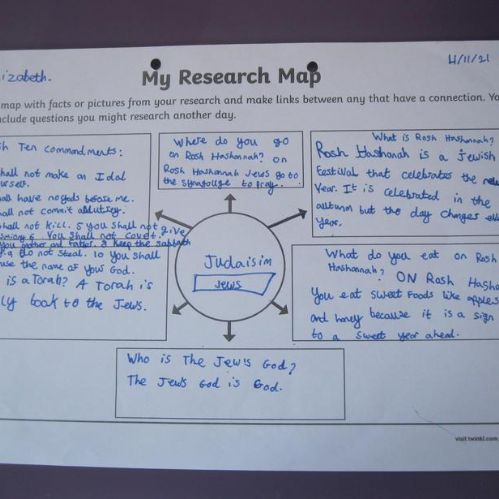 izabeth.
4/11/21
My Research Map
map with facts or pictures from your research and make links between any that have a connection. Yo
clude questions you might research another day.
sh Ten Commandments:
hall not make an Idol
urself.
all have no gods before me.
all not commit
hall not kill. 5 you shall not give
6 You shall not covet.
your mother and father. 8 keep the sabbath
9 do not steal. 10 you shall
use the name of your God.
is a Torah? A Torah is
ly book to the Jews.
Where do you go
on Rosh Hashannah? on
Rosh Hashannah Jews go to
the synagouge to pray.
What is Rosh Hashannah?
Rosh Hashanah is a Jewish
festival that celebrates the new
year. It is celebrated in the
autumn but the day changes
year.
Judaisim
Jews
What do you eat on Rosh
Hashannah? ON Rosh Hasha
You eat sweet foods like apples
and honey because it is a sign
to a sweet year ahead.
Who is The Jew's God?
The Jews God is God.
visit twinkl.com